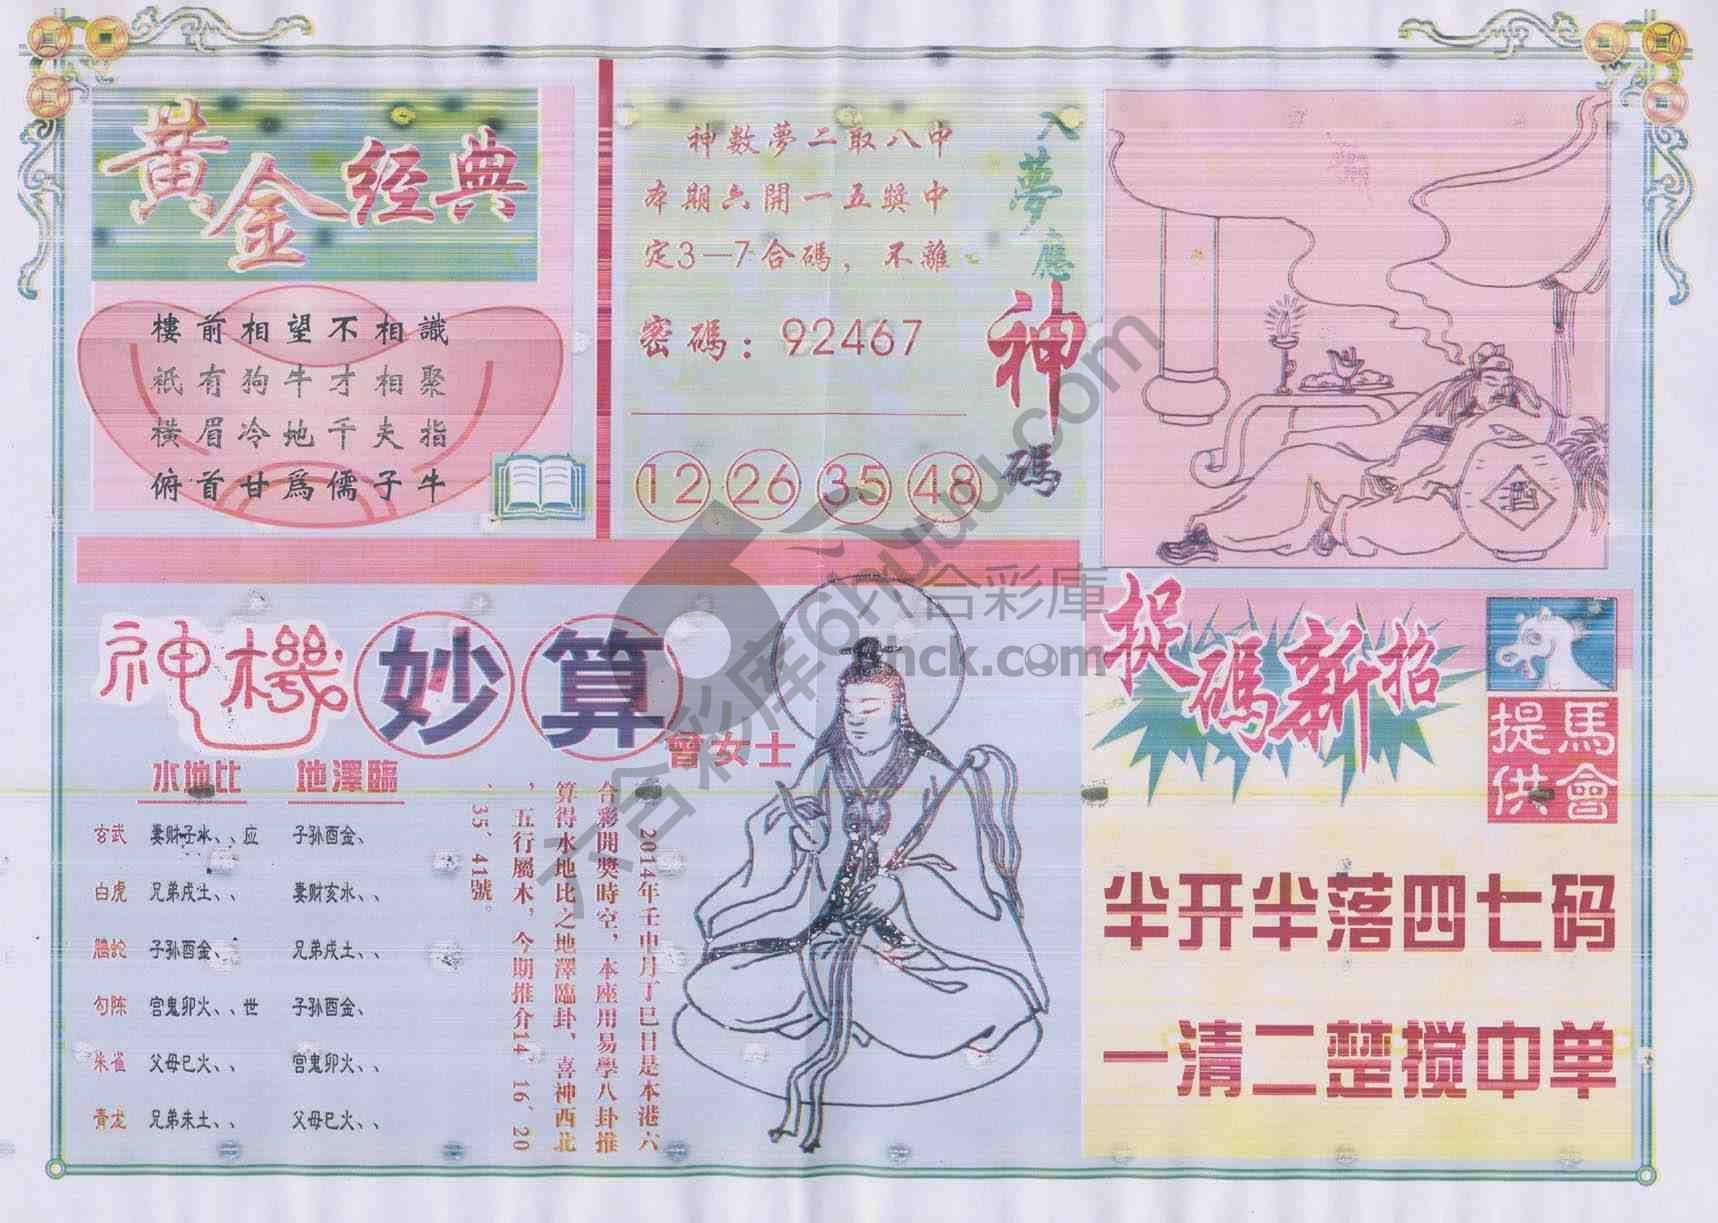 黄金经典
樓前相望不相識
祇有狗牛才相聚
橫眉冷地千夫指
俯首甘爲儒子牛
入夢應神碼
神數夢二取八中
本期六開一五獎中
定3—7合碼，不離
密碼：92467
12 26 35 48
酒
神機妙算
曾女士
水地比 地澤臨
玄武 妻财子水、、应 子孙酉金、
白虎 兄弟戌土、、 妻财亥水、、
螣蛇 子孙酉金、 兄弟戌土、、
勾陈 宫鬼卯火、、世 子孙酉金、
朱雀 父母巳火、、 宫鬼卯火、、
青龙 兄弟未土、、 父母巳火、、
2014年壬申月丁巳日是本港六
合彩開獎時空，本座用易學八卦推
算得水地比之地澤臨卦、喜神西北
，五行屬木，今期推介14、16、20
、35、41號。
捉碼新招
馬會
提供
半开半落四七码
一清二楚搅中单
六合彩庫
hck.com
六合彩库6huuu.com